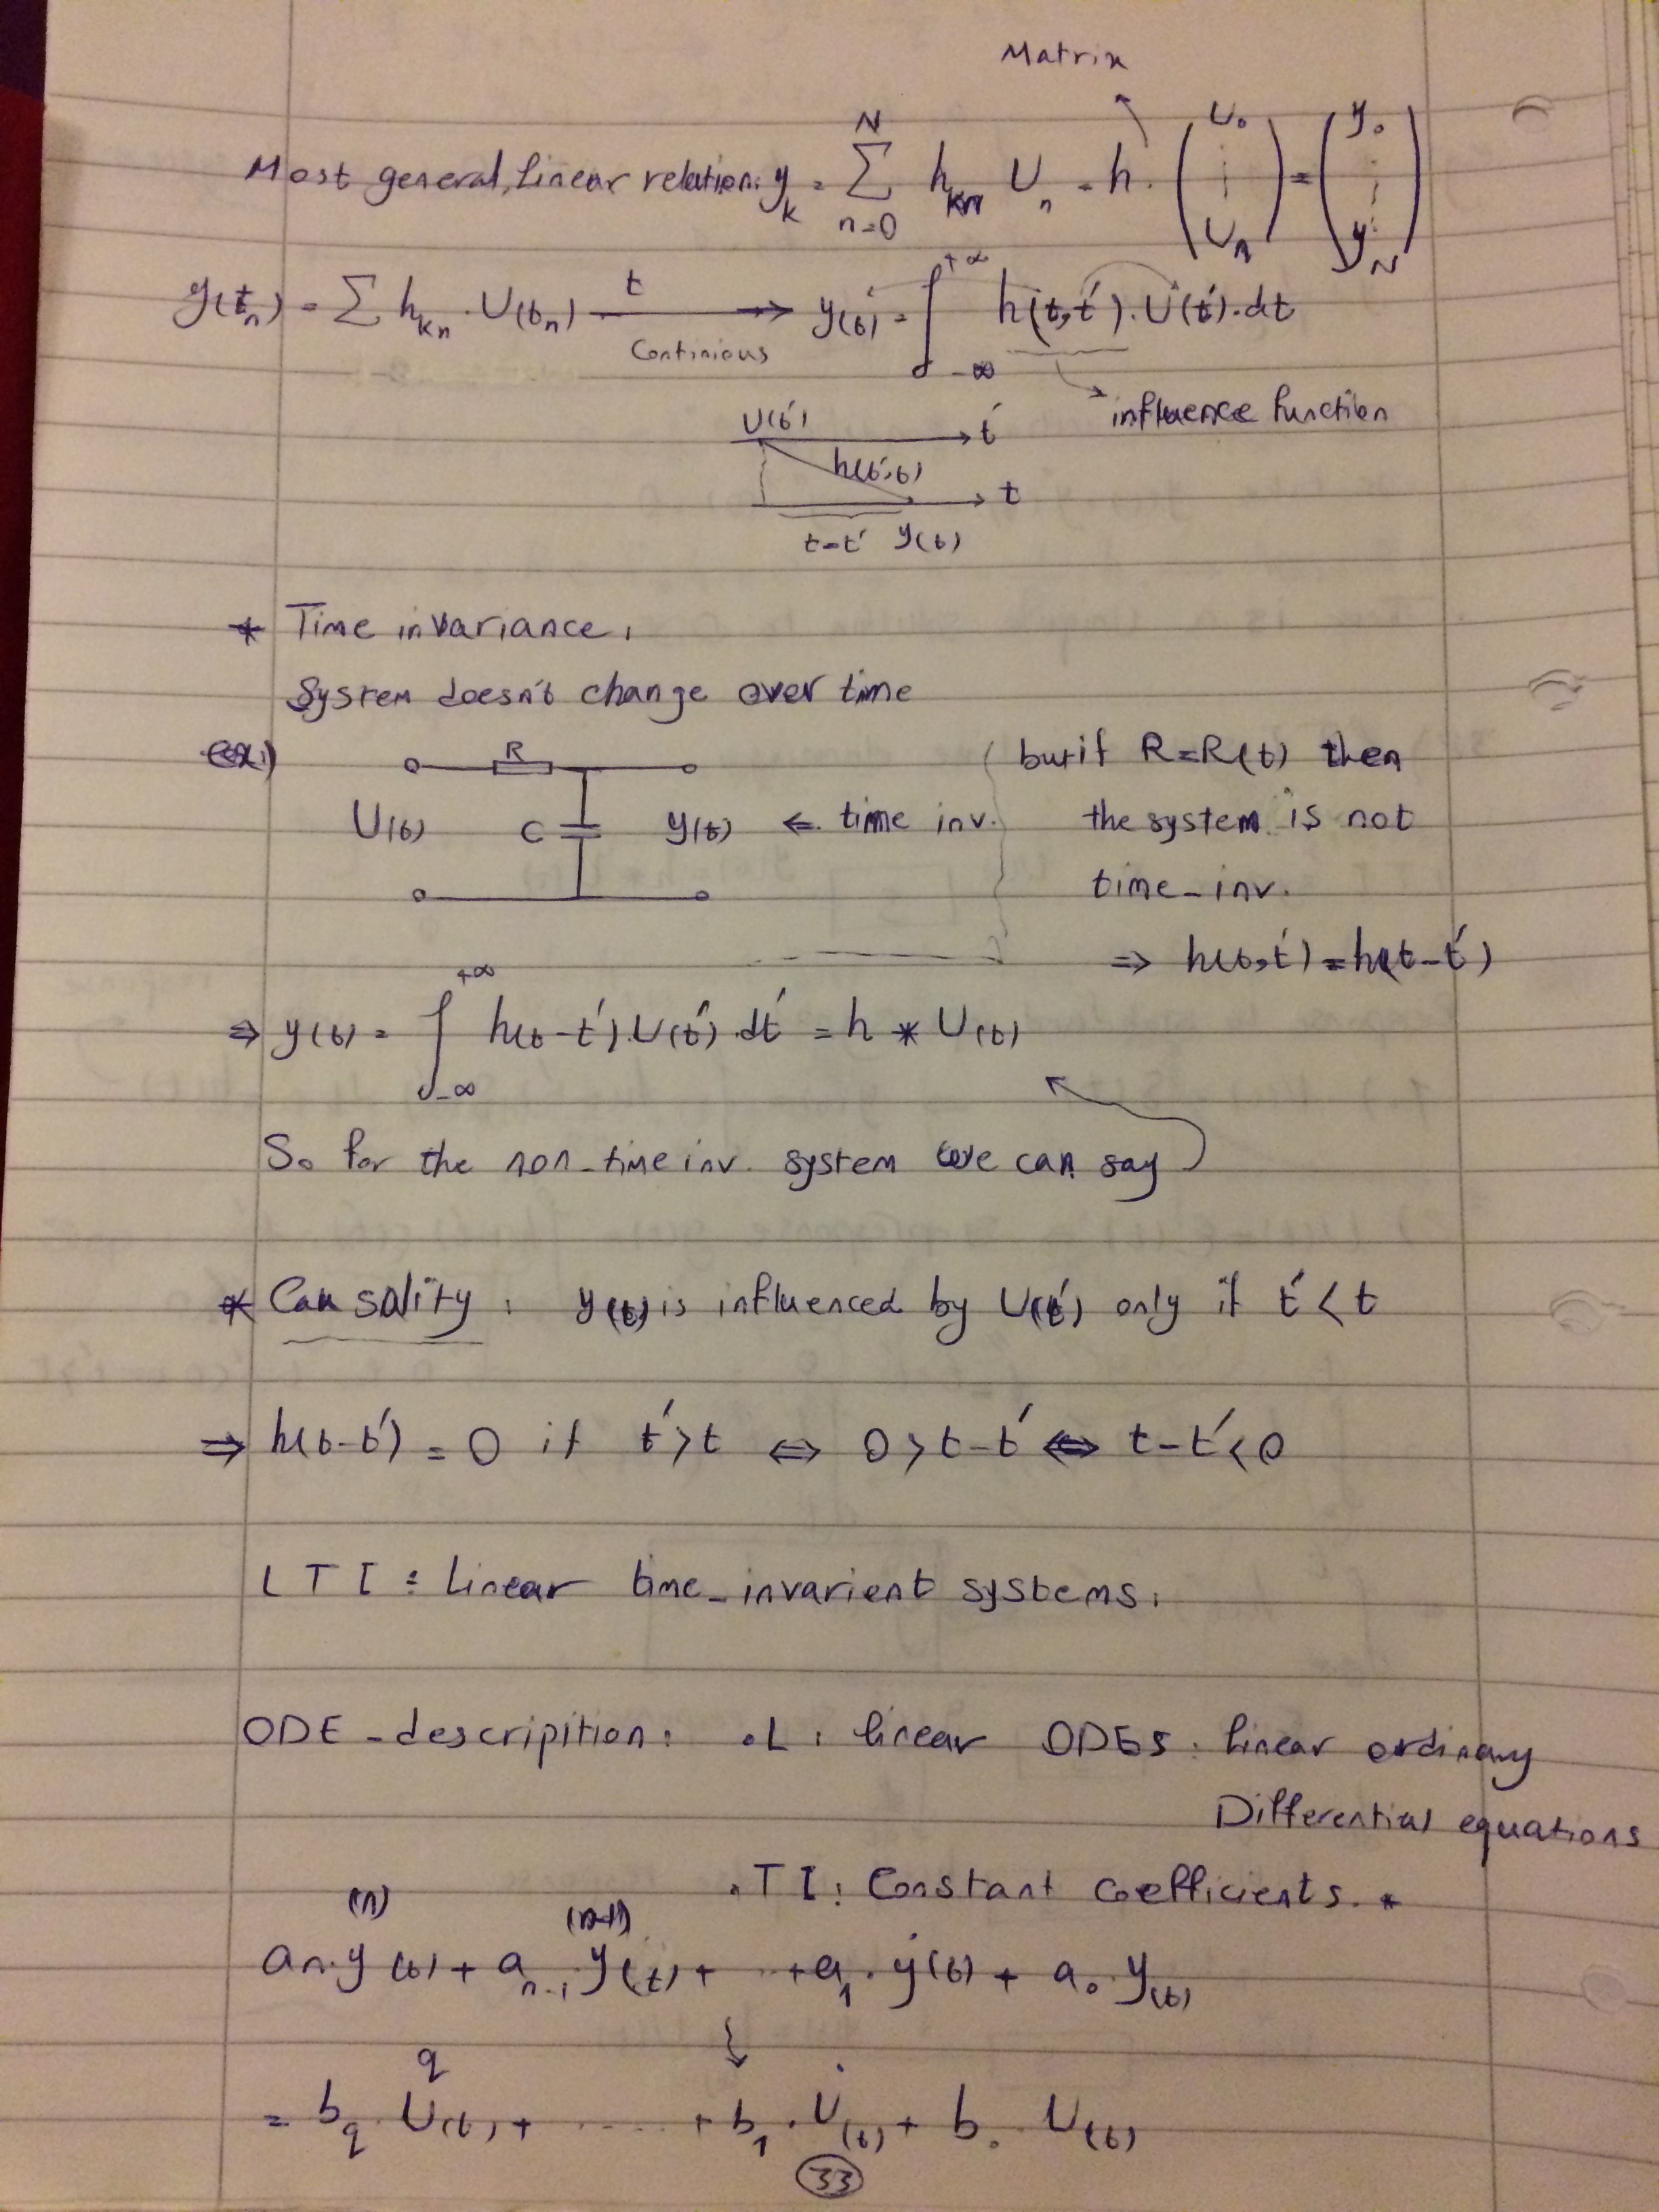 Matrix
Most general, linear relation: y_k = Σ_{n=0}^{N} h_{kn} U_n = h · (U_0 ⋮ U_n) = (y_0 ⋮ y_N)
y(t_n) = Σ h_{kn} · U(t_n) —t→ y(t) = ∫_{-∞}^{+∞} h(t,t') · U(t') · dt
Continious
influence function
U(t') t'
h(t',t)
t
t-t' y(t)
* Time invariance:
System doesn't change over time
ex.) R but if R=R(t) then
U(t) C y(t) ⇐ time inv. the system is not
time-inv.
⇒ h(t,t') = h(t-t')
⇒ y(t) = ∫_{-∞}^{+∞} h(t-t') · U(t') · dt' = h * U(t)
So for the non-time inv. system we can say
* Causality: y(t) is influenced by U(t') only if t' < t
⇒ h(t-t') = 0 if t' > t ⇔ 0 > t-t' ⇔ t-t' < 0
LTI: linear time-invarient systems.
ODE-descripition: • L: linear ODEs: linear ordinary
Differential equations
• TI: Constant coefficients. *
a_n · y^{(n)}(t) + a_{n-1} · y^{(n-1)}(t) + ... + a_1 · ẏ(t) + a_0 · y(t)
= b_q · U^q(t) + ..... + b_1 · U̇(t) + b_0 · U(t)
33